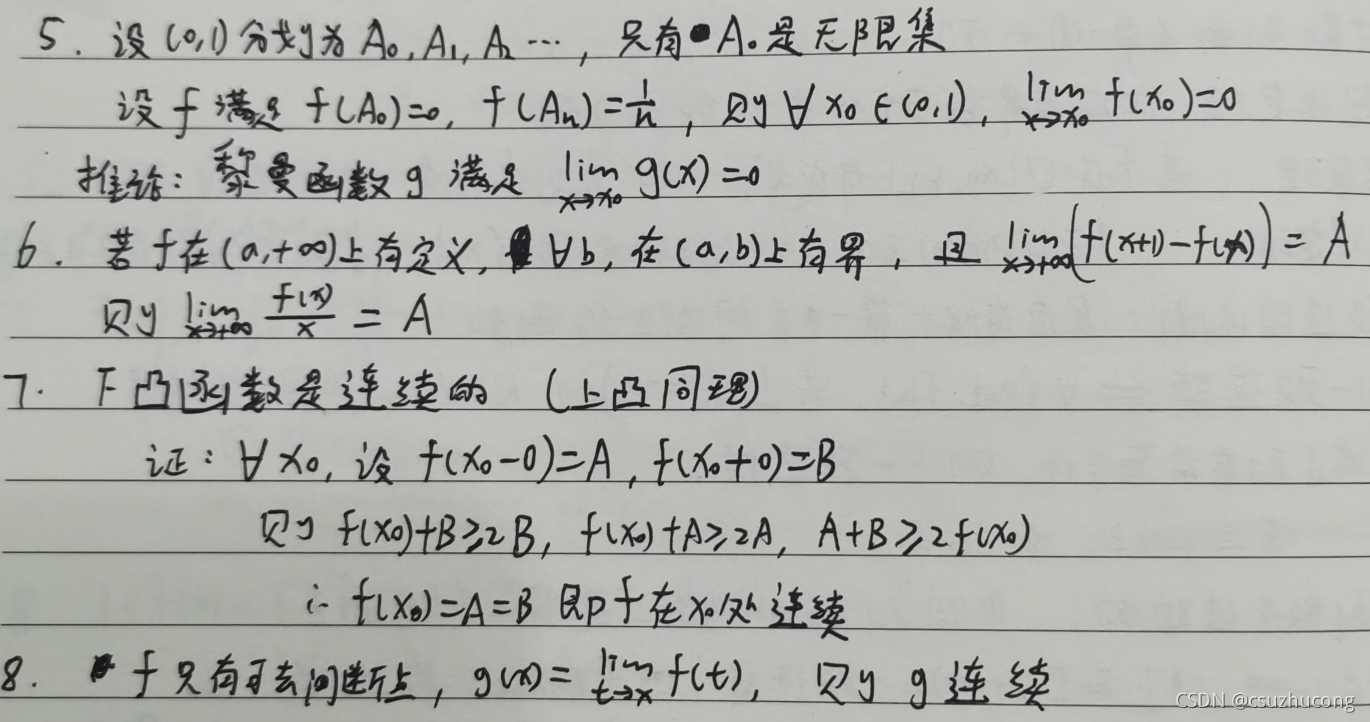 5. 设(0,1)分划为A₀,A₁,A₂⋯,只有A₀是无限集
设f满足f(A₀)=0, f(Aₙ)=1/n, 则∀x₀∈(0,1), lim_{x→x₀} f(x₀)=0
推论:黎曼函数g满足 lim_{x→x₀} g(x)=0
6. 若f在(a,+∞)上有定义, ∀b, 在(a,b)上有界, 且 lim_{x→+∞}(f(x+1)-f(x))=A
则 lim_{x→+∞} f(x)/x = A
7. 下凸函数是连续的 (上凸同理)
证:∀x₀, 设 f(x₀-0)=A, f(x₀+0)=B
则 f(x₀)+B≥2B, f(x₀)+A≥2A, A+B≥2f(x₀)
∴ f(x₀)=A=B 即f在x₀处连续
8. f只有可去间断点, g(x)=lim_{t→x} f(t), 则g连续
CSDN @csuzhucong